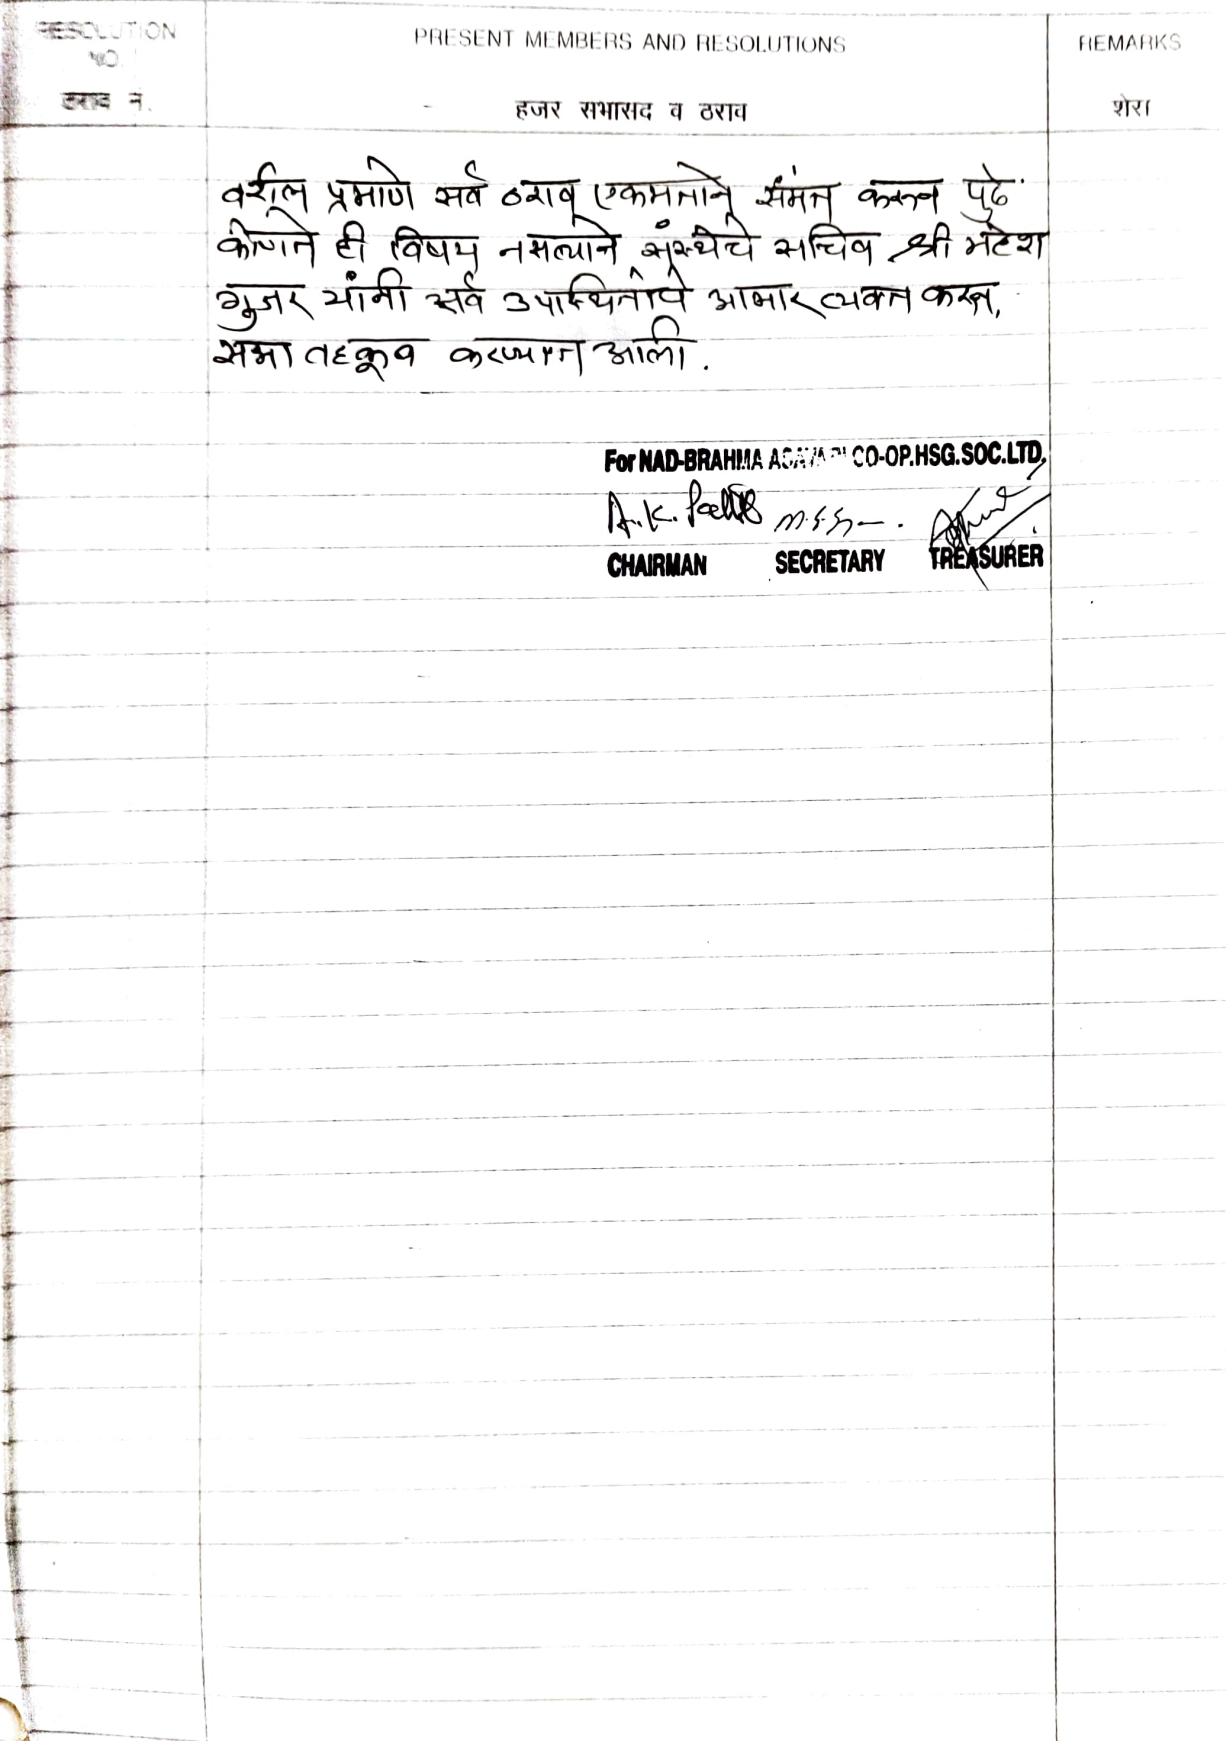 RESOLUTION PRESENT MEMBERS AND RESOLUTIONS REMARKS
NO.
ठराव नं. हजर सभासद व ठराव शेरा
वरील प्रमाणे सर्व ठराव एकमताने संमत करून पुढे
कोणते ही विषय नसल्याने संस्थेचे सचिव श्री महेश
गुजर यांनी सर्व उपस्थितांचे आभार व्यक्त करून,
सभा तहकूब करण्यात आली.
For NAD-BRAHMA ASAVARI CO-OP.HSG.SOC.LTD.
A.K.
CHAIRMAN SECRETARY TREASURER